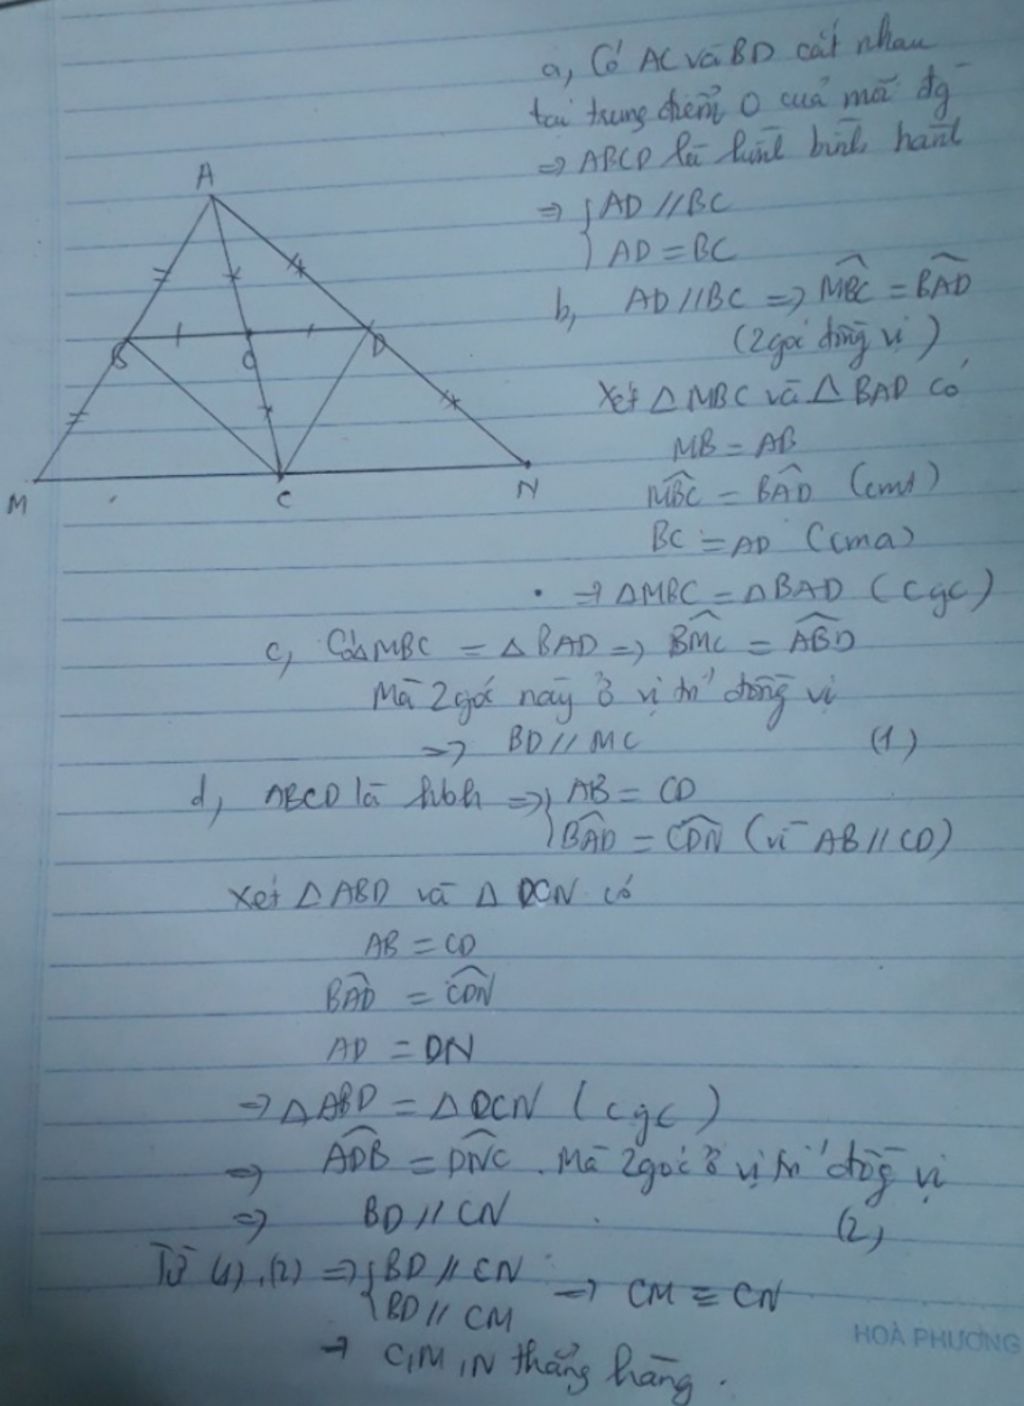 a, Có AC và BD cắt nhau
tại trung điểm O của mỗi đg
⇒ ABCD là hình bình hành
⇒ { AD // BC
AD = BC
b, AD // BC ⇒ \widehat{MBC} = \widehat{BAD}
(2 góc đồng vị)
Xét Δ MBC và Δ BAD có
MB = AB
\widehat{MBC} = \widehat{BAD} (cmt)
BC = AD (cma)
⇒ ΔMBC = ΔBAD (cgc)
c, Có ΔMBC = ΔBAD ⇒ \widehat{BMC} = \widehat{ABD}
Mà 2 góc này ở vị trí đồng vị
⇒ BD // MC (1)
d, ABCD là hbh ⇒ { AB = CD
\widehat{BAD} = \widehat{CDN} (vì AB // CD)
Xét Δ ABD và Δ DCN có
AB = CD
\widehat{BAD} = \widehat{CDN}
AD = DN
⇒ Δ ABD = Δ DCN (cgc)
⇒ \widehat{ADB} = \widehat{DNC} . Mà 2 góc ở vị trí đồng vị
⇒ BD // CN (2)
Từ (1), (2) ⇒ { BD // CN
BD // CM
⇒ CM ≡ CN
→ C, M, N thẳng hàng.
A
B
O
D
M
C
N
HOÀ PHƯƠNG